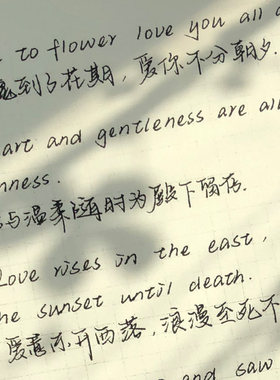 to flower love you all d
意到了花期，爱你不分朝夕.
art and gentleness are all
nness.
与温柔随时为殿下留存.
Love rises in the east,
he sunset until death.
爱意东升西落，浪漫至死不
and saw